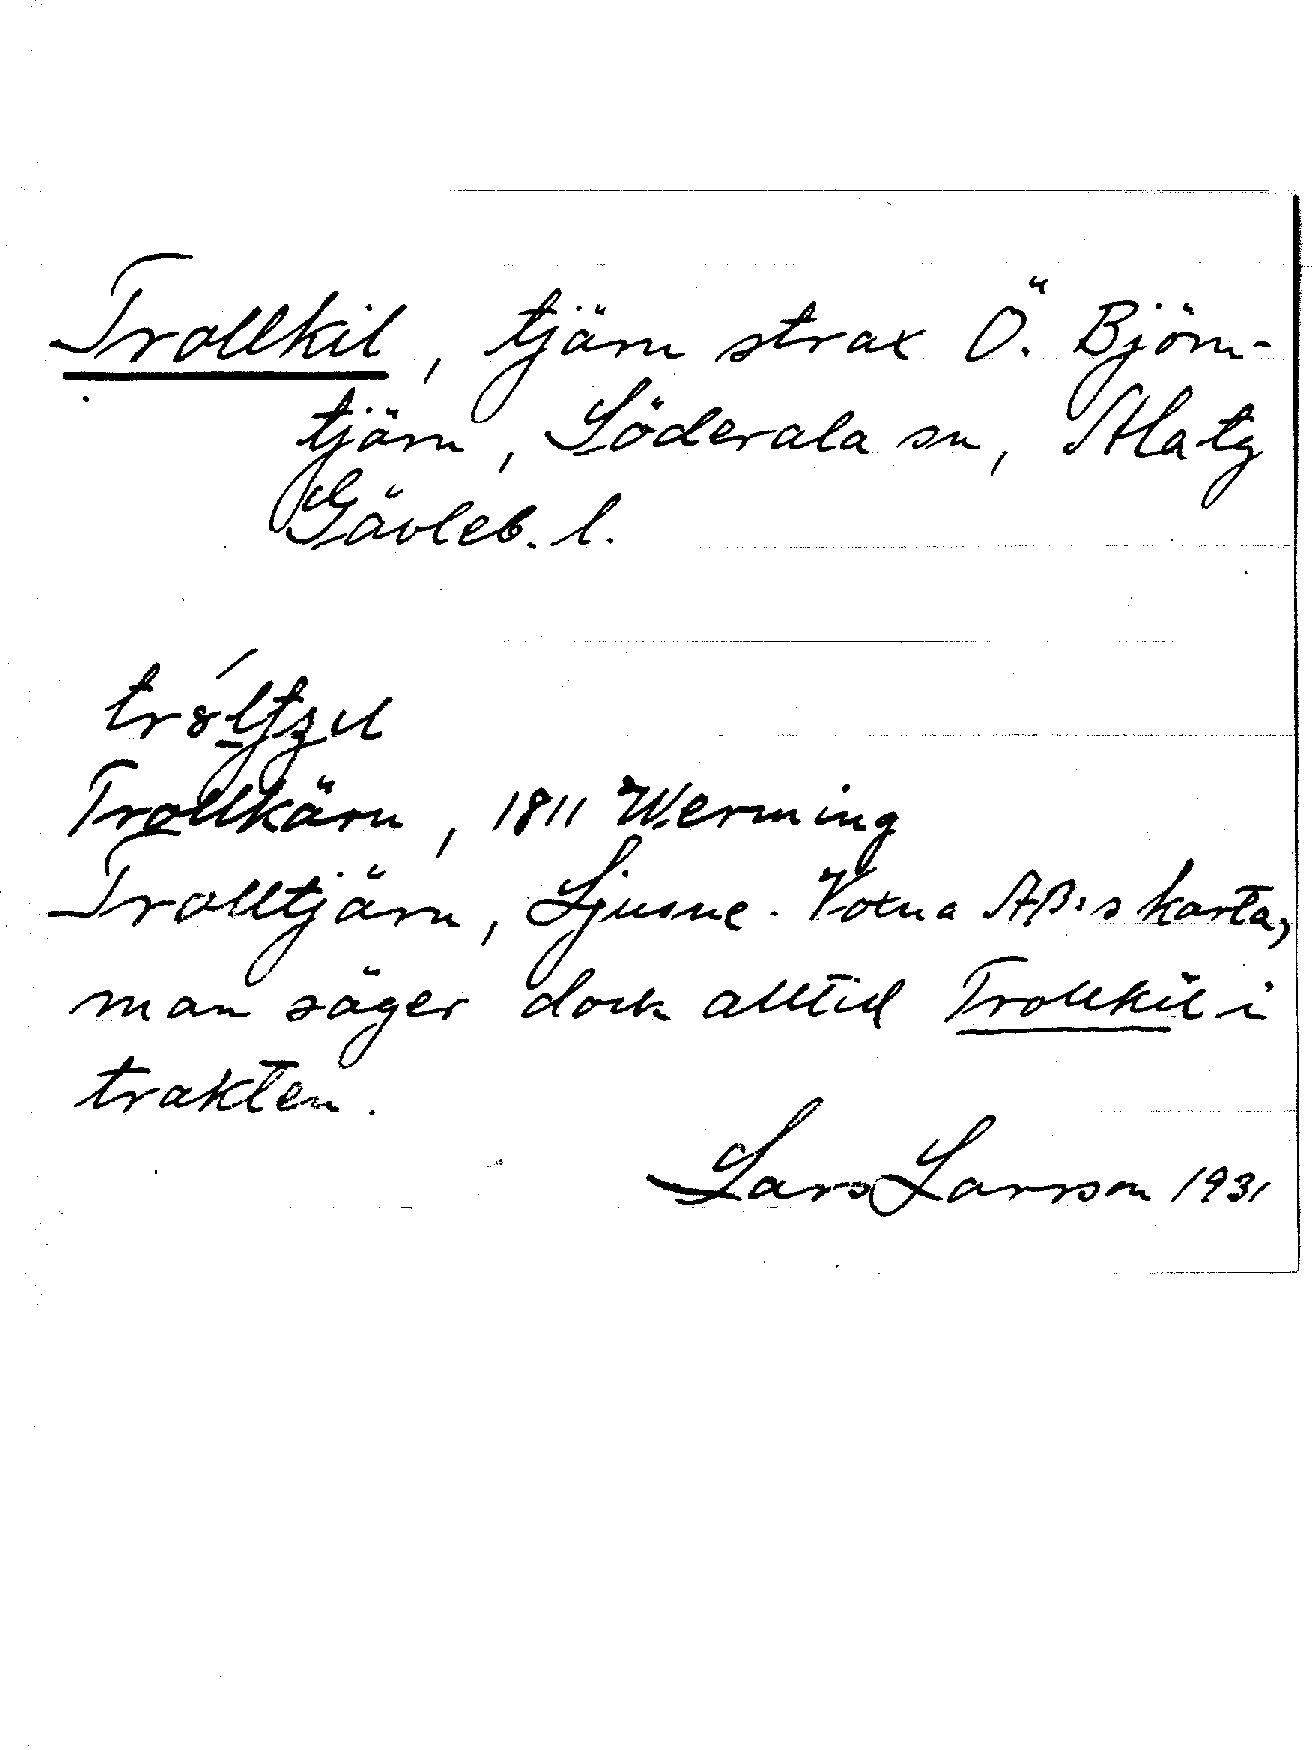 Trollkil, tjärn strax Ö. Björn-
tjärn, Söderala sn, Ala tg
Gävleb. l.
Trollkärn, 1811 Werming
Trolltjärn, Ljusne. Voxna AB:s karta,
man säger dock alltid Trollkil i
trakten.
Lars Larsson 1931